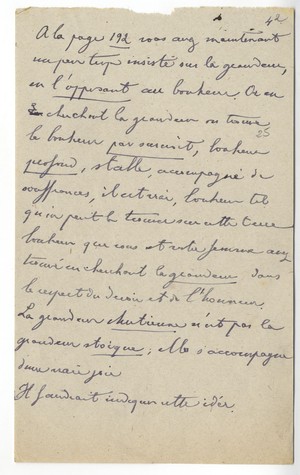 42
A la page 192 vous avez maintenant
un peu trop insisté sur la grandeur,
en l'opposant au bonheur. Or en
cherchant la grandeur on trouve
25
le bonheur par surcroît, bonheur
profond, stable, accompagné de
souffrances, il est vrai, bonheur tel
qu'on peut le trouver sur cette terre
bonheur que vous et votre femme avez
trouvé en cherchant la grandeur dans
le respect du devoir et de l'honneur.
La grandeur chrétienne n'est pas la
grandeur stoïque; elle s'accompagne
d'une vraie joie
Il faudrait indiquer cette idée.